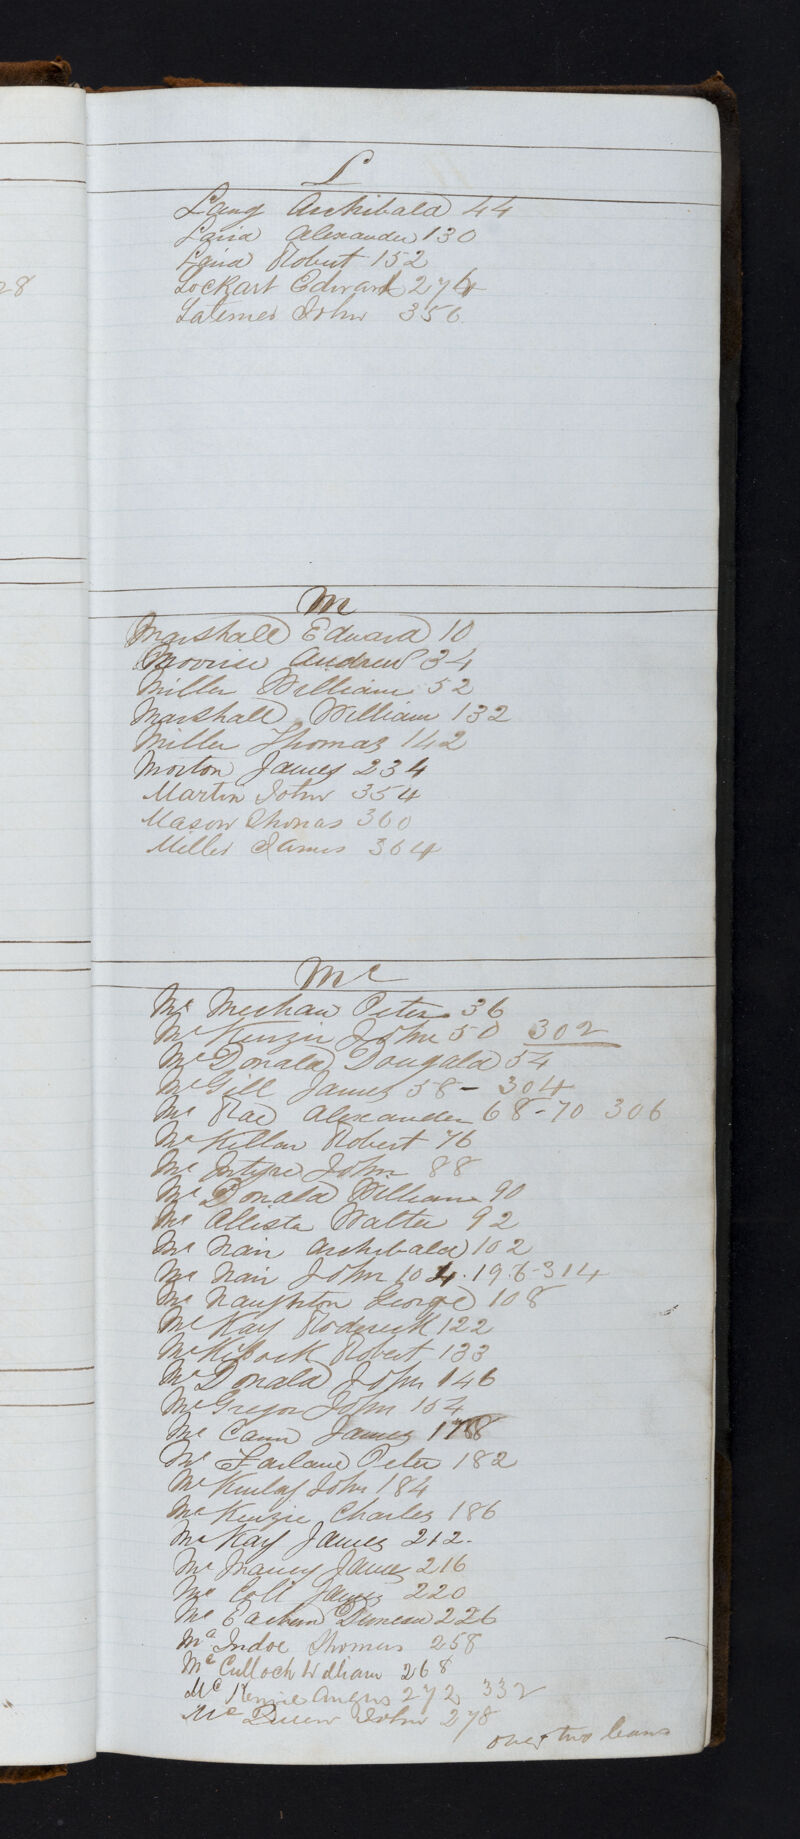 28
L
Lang Archibald 44
Laird Alexander 130
Laird Robert 152
Lockart Edward 274
Latimer John 356
M
Marshall Edward 10
Moorise Andrew 34
Miller William 52
Marshall William 132
Miller Thomas 142
Morton James 234
Martin John 354
Mason Thomas 360
Miller James 364
Mc
Mc Meekan Peter 36
Mc Kenzie John 50 302
Mc Donald Dougald 54
Mc Gill James 58 - 304
Mc Rae Alexander 68-70 306
Mc Kellar Robert 76
Mc Intyre John 88
Mc Donald William 90
Mc Allister Walter 92
Mc Nair Archibald 102
Mc Nair John 104. 196-314
Mc Naughton George 108
Mc Kay Roderick 122
Mc Robert 133
Mc Donald John 146
Mc Gregor John 154
Mc Cann James
Mc Farlane Peter 182
Mc Kinlay John 184
Mc Kenzie Charles 186
Mc Kay James 212.
Mc James 216
Mc Coll James 220
Mc Eachern Duncan 226
Mc Indoe Thomas 258
Mc Culloch William 268
Mc Kenzie Angus 272 332
Mc Queen John 278
over two leaves